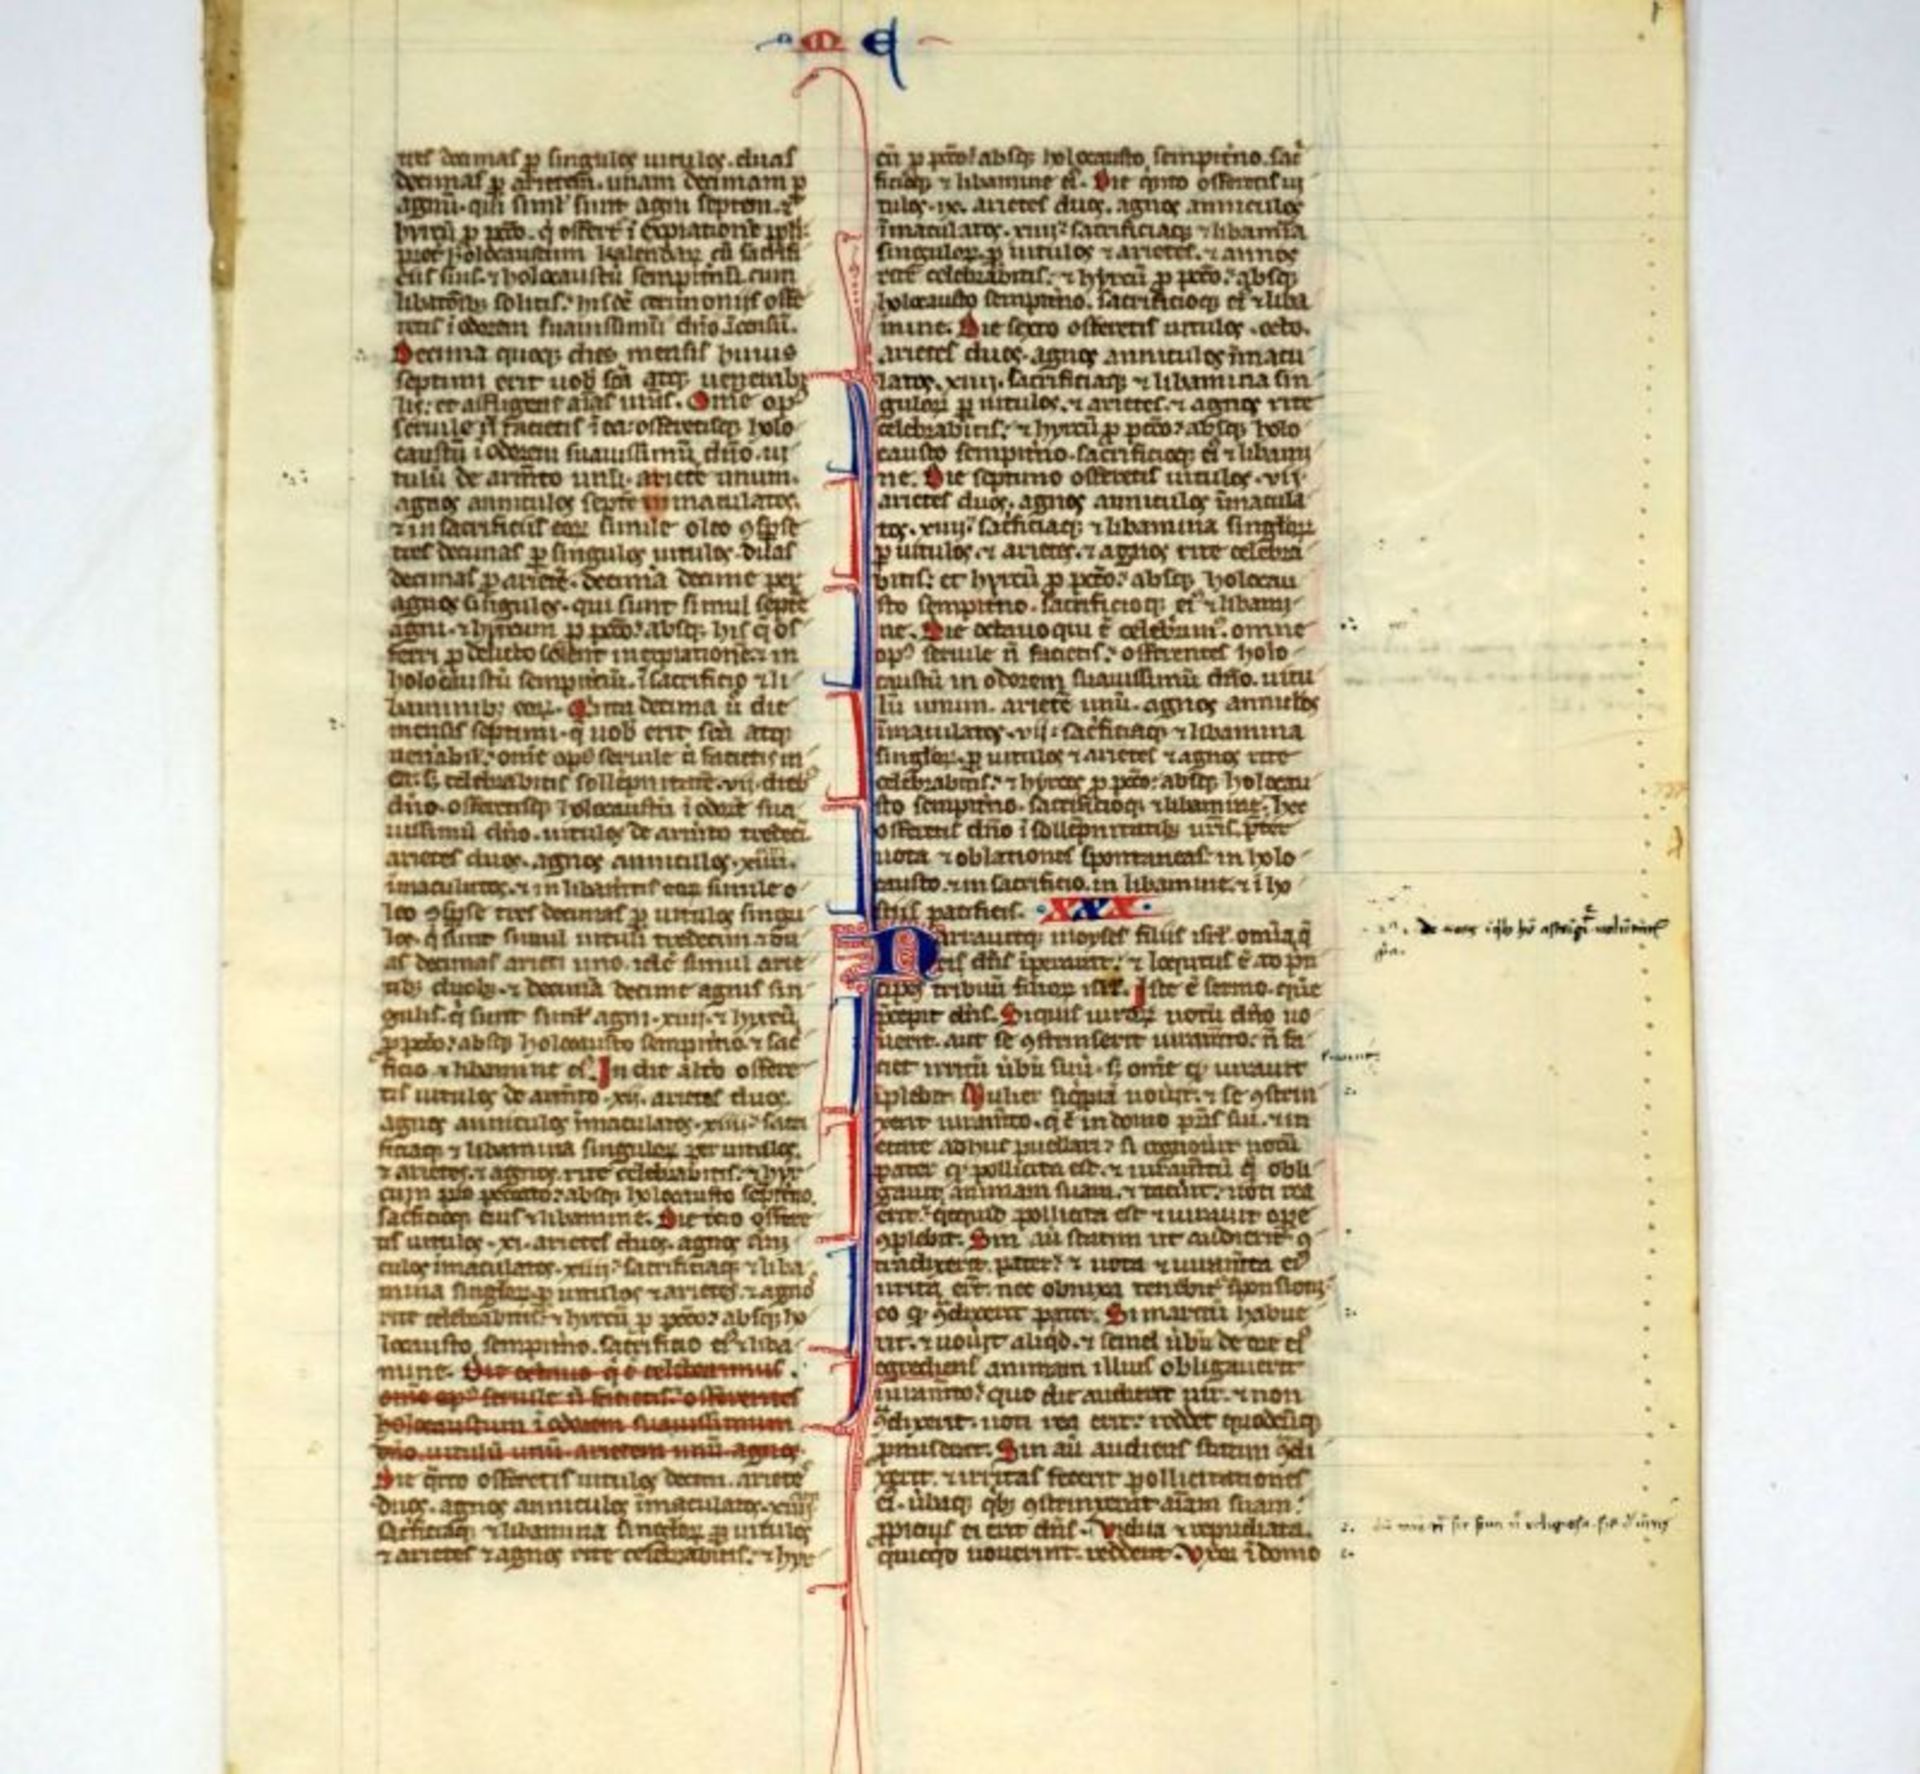 M E
tres decimas ꝑ singulos uitulos. duas
decimas ꝑ arietem. unam decimam ꝑ
agnū. qui simĺ sunt agni septem. ⁊
hyrcū ꝑ pctō. q̇ offert̄ ī expiationē ppl̄i.
libatōibꝫ solitis. hisdē cerimoniis offe
retis ī odorem suauissimū dn̄o īcensū.
Decima quoqꝫ dies mensis huius
septimi erit uob̄ sc̄a atqꝫ uenerabi
lis. et affligetis aīas ur̄as. Omne opꝰ
seruile n̄ facietis ī ea. offeretisqꝫ holo
caustū ī odorem suauissimū dn̄o. ui
tulū de armēto unū. arietē unum.
agnos anniculos septē immaculatos.
⁊ in sacrificiis eoꝝ simile oleo ꝯspse
tres decimas ꝑ singulos uitulos. duas
decimas ꝑ arietē. decimā decime per
agnos singulos. qui sunt simul septē
agni. ⁊ hyrcum ꝑ pctō. absqꝫ his q̄ of
ferri ꝑ delicto solent in expiationē. ⁊ in
holocaustū sempit̄nū. ī sacrificio ⁊ li
baminibꝫ eoꝝ. Qinta decima ū die
mensis septimi. q̄ uob̄ erit sc̄a atqꝫ
uen̄abił. om̄e opꝰ seruile n̄ facietis in
ea. s; celebrabitis sollēpnitatē. vii. diebꝫ
dn̄o. offeretisqꝫ holocaustū ī odorē sua
uissimū dn̄o. uitulos de armēto tredeci.
arietes duos. agnos anniculos. xiiii.
īmaculatos. ⁊ in libam̄tis eoꝝ simile o
leo ꝯspse tres decimas ꝑ uitulos singu
los. q̇ sunt simul uituli tredecim ⁊ du
as decimas arieti uno. id ē simul arie
tibꝫ duobꝫ. ⁊ decimā decime agnis sin
gulis. q̇ sunt simĺ agni. xiiii. ⁊ hyrcū
ꝑ pctō. absqꝫ holocausto sempit̄no. ⁊ sac̄
ficio ⁊ libamine eiꝰ. In die alt̄o offere
tis uitulos de armēto. xii. arietes duos.
agnos anniculos īmaculatos. xiiii. sacri
ficiaqꝫ ⁊ libamina singuloꝝ per uitulos.
⁊ arietes. ⁊ agnos. rite celebrabitis. ⁊ hyr
cum pro peccato. absqꝫ holocausto sēpit̄no.
sac̄ficioqꝫ eius ⁊ libamine. Die t̄cio offere
tis uitulos. xi. arietes duos. agnos anni
culos īmaculatos. xiiii. sacrificiaqꝫ ⁊ liba
mina singłoꝝ. ꝑ uitulos ⁊ arietes. ⁊ agnos
rite celebrabitis. ⁊ hyrcū ꝑ pctō. absqꝫ ho
locausto sempit̄no. sacrificio eiꝰ ⁊ liba
mine. Die octauo q̇ ē celeberrimus.
om̄e opꝰ seruile n̄ facietis. offerentes
holocaustum ī odorem suauissimum
dn̄o. uitulū unū. arietem unū. agnos
Die q̄rto offeretis uitulos decem. arietes
duos. agnos anniculos īmaculatos. xiiii.
sac̄ficiaqꝫ ⁊ libamina singłoꝝ ꝑ uitulos
⁊ arietes ⁊ agnos rite celebrabitis. ⁊ hyr
cū ꝑ pctō. absqꝫ holocausto sempit̄no. sac̄
ficioqꝫ ⁊ libamine eiꝰ. Die q̇nto offeretis ui
tulos. ix. arietes duos. agnos anniculos
īmaculatos. xiiii. sacrificiaqꝫ ⁊ libamīa
singuloꝝ. ꝑ uitulos ⁊ arietes. ⁊ agnos
rite celebrabitis. ⁊ hyrcū ꝑ pctō. absqꝫ
holocausto sempit̄no. sacrificioqꝫ eiꝰ ⁊ liba
mine. Die sexto offeretis uitulos. octo.
arietes duos. agnos anniculos īmacu
latos. xiiii. sacrificiaqꝫ ⁊ libamina sin
guloꝝ ꝑ uitulos. ⁊ arietes. ⁊ agnos rite
celebrabitis. ⁊ hyrcū ꝑ pctō. absqꝫ holo
causto sempit̄no. sacrificioqꝫ eiꝰ ⁊ libami
ne. Die septimo offeretis uitulos. vii.
arietes duos. agnos anniculos īmacula
tos. xiiii. sac̄ficiaqꝫ ⁊ libamina singłoꝝ
ꝑ uitulos. ⁊ arietes. ⁊ agnos rite celebra
bitis. et hyrcū ꝑ pctō. absqꝫ holocau
sto sempit̄no. sacrificioqꝫ eiꝰ ⁊ libami
ne. Die octauo qui ē celeberrimꝰ. omne
opꝰ seruile n̄ facietis. offerentes holo
caustū in odorem suauissimū dn̄o. uitu
lū unum. arietē unū. agnos annicłos
īmaculatos. vii. sac̄ficiaqꝫ ⁊ libamina
singłoꝝ. ꝑ uitulos ⁊ arietes ⁊ agnos rite
celebrabitis. ⁊ hyrcos ꝑ pctō. absqꝫ holocau
sto sempit̄no. sacrificioqꝫ ⁊ libamine. hec
offeretis dn̄o ī sollēpnitatibꝫ ur̄is. p̄ter
uota ⁊ oblationes spontaneas. in holo
causto. ⁊ in sacrificio. in libamine. ⁊ ī ho
stiis pacificis. XXX.
Narrauitqꝫ moyses filiis isr̄l. omīa q̄
ei dn̄s īperauit. ⁊ locutus ē ad pn̄
cipes tribuū filioꝝ isr̄l. Iste ē sermo. quē
p̄cepit dn̄s. Siquis uiroꝝ uotū dn̄o uo
uerit. aut se ꝯstrinxerit iuram̄to. n̄ fa
ciet irritū ūbū suū. s; om̄e q̄ iurauit
īplebit. Mulier siq̇ppiā uoūit. ⁊ se ꝯstrin
xerit iuram̄to. q̄ ē in domo pr̄is sui. ⁊ in
etate adhuc puellari. si cognoūit uotū
pater q̄ pollicita est. ⁊ iuram̄tū q̄ obli
gauit animam suam. ⁊ tacūit. uoti rea
erit. q̇cquid pollicita est ⁊ iurauit ope
ꝯplebit. Sin aū statim ut audierit. ꝯ
tradixerit pater. ⁊ uota ⁊ iuram̄ta eiꝰ
irrita erūt. nec obnoxia tenebit̄ sponsioni.
eo q̄ ꝯdixerit pater. Si maritū habue
rit. ⁊ uoūit aliq̇d. ⁊ semel ūbū de ore eiꝰ
egrediens animam illius obligauerit
iuram̄to. quo die audierit uir. ⁊ non
ꝯdixerit. uoti rea erit. reddet quodcūqꝫ
promiserat. Sin aū audiens statim ꝯdi
xerit. ⁊ irritas fecerit pollicitationes
eiꝰ. ūbaqꝫ q̇bꝫ ꝯstrinxerat aīam suam.
ꝓpicius ei erit dn̄s. Vidua ⁊ repudiata.
quicq̇d uouerint. reddent. Vxor ī domo